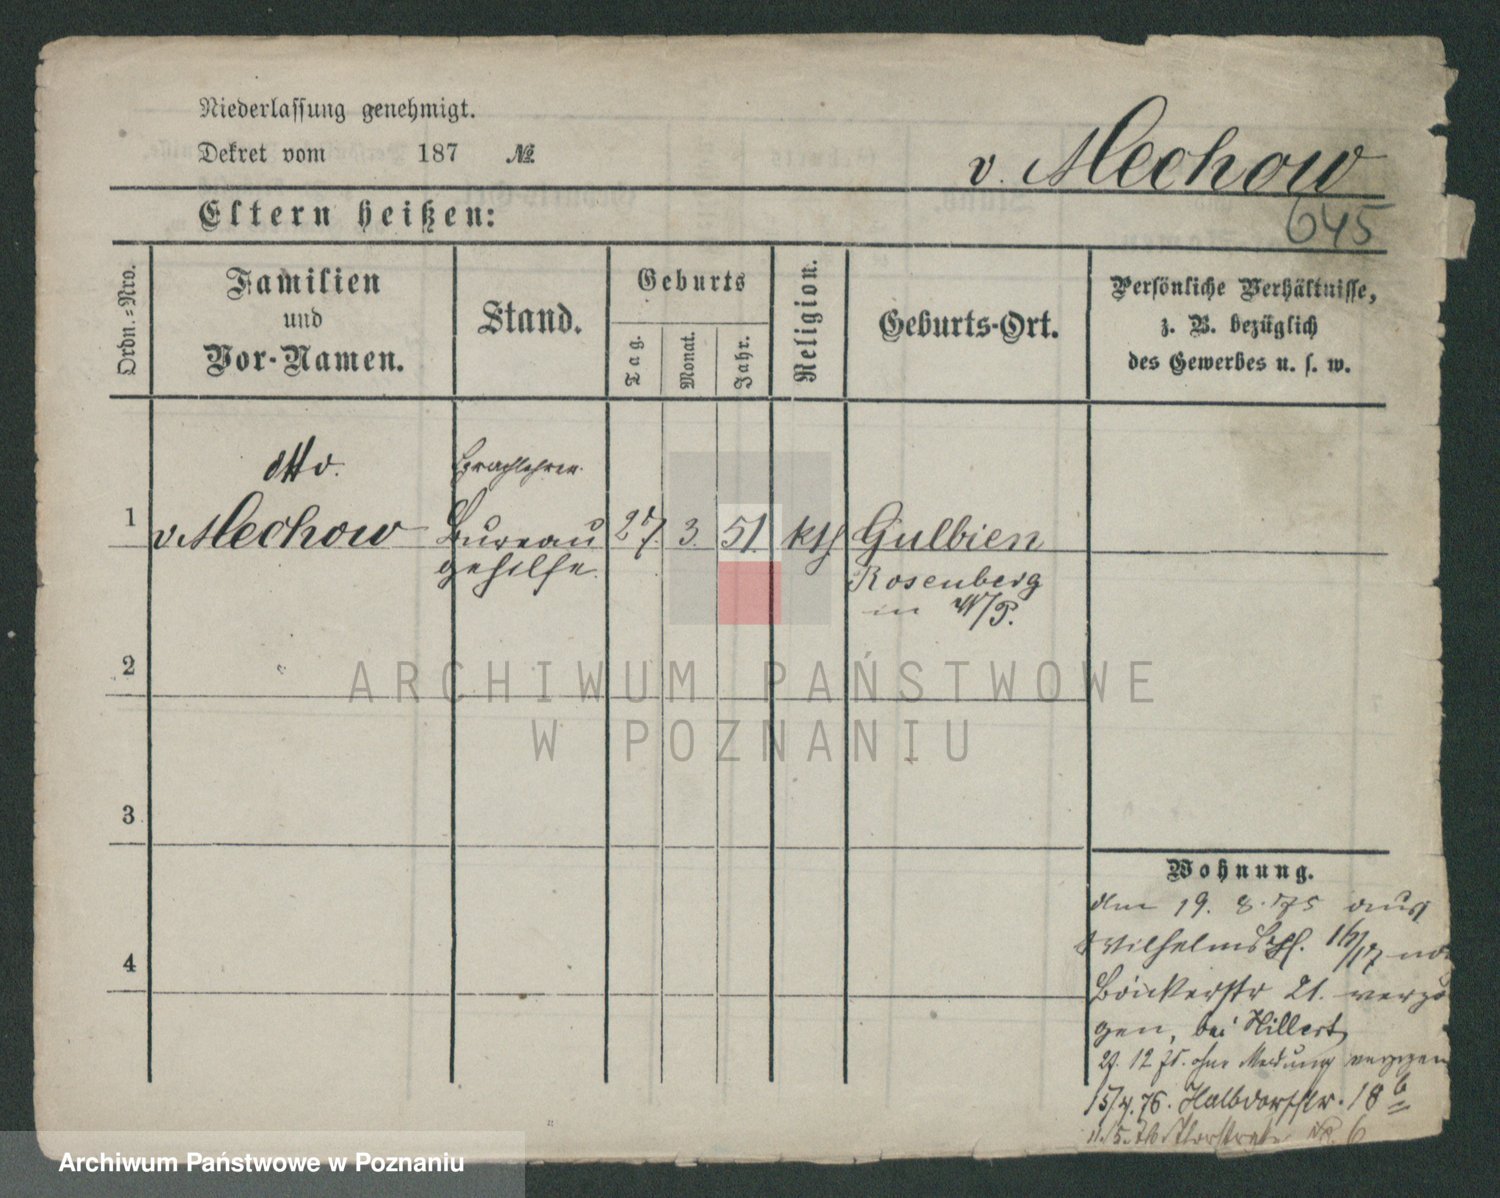 Niederlassung genehmigt.
Dekret vom 187 №
v. Mechow
645
Eltern heißen:
Ordn.-Nro.
Familien
und
Vor-Namen.
Stand.
Geburts
Tag.
Monat.
Jahr.
Religion.
Geburts-Ort.
Persönliche Verhältnisse,
z. B. bezüglich
des Gewerbes u. s. w.
1
Otto
v. Mechow
Sprachlehrer
Bureau
gehilfe.
27. 3. 51. kth
Gulbien
Rosenberg
in W/P.
2
3
4
Wohnung.
den 19. 8. 75 aus
Wilhelms 16/17
Bäckerstr 21. verzo
gen, bei Hillert
12 75. ohne Meldung verzogen
15/4. 76. Halbdorfstr. 18 b
5. 76 6
ARCHIWUM PAŃSTWOWE
W POZNANIU
Archiwum Państwowe w Poznaniu